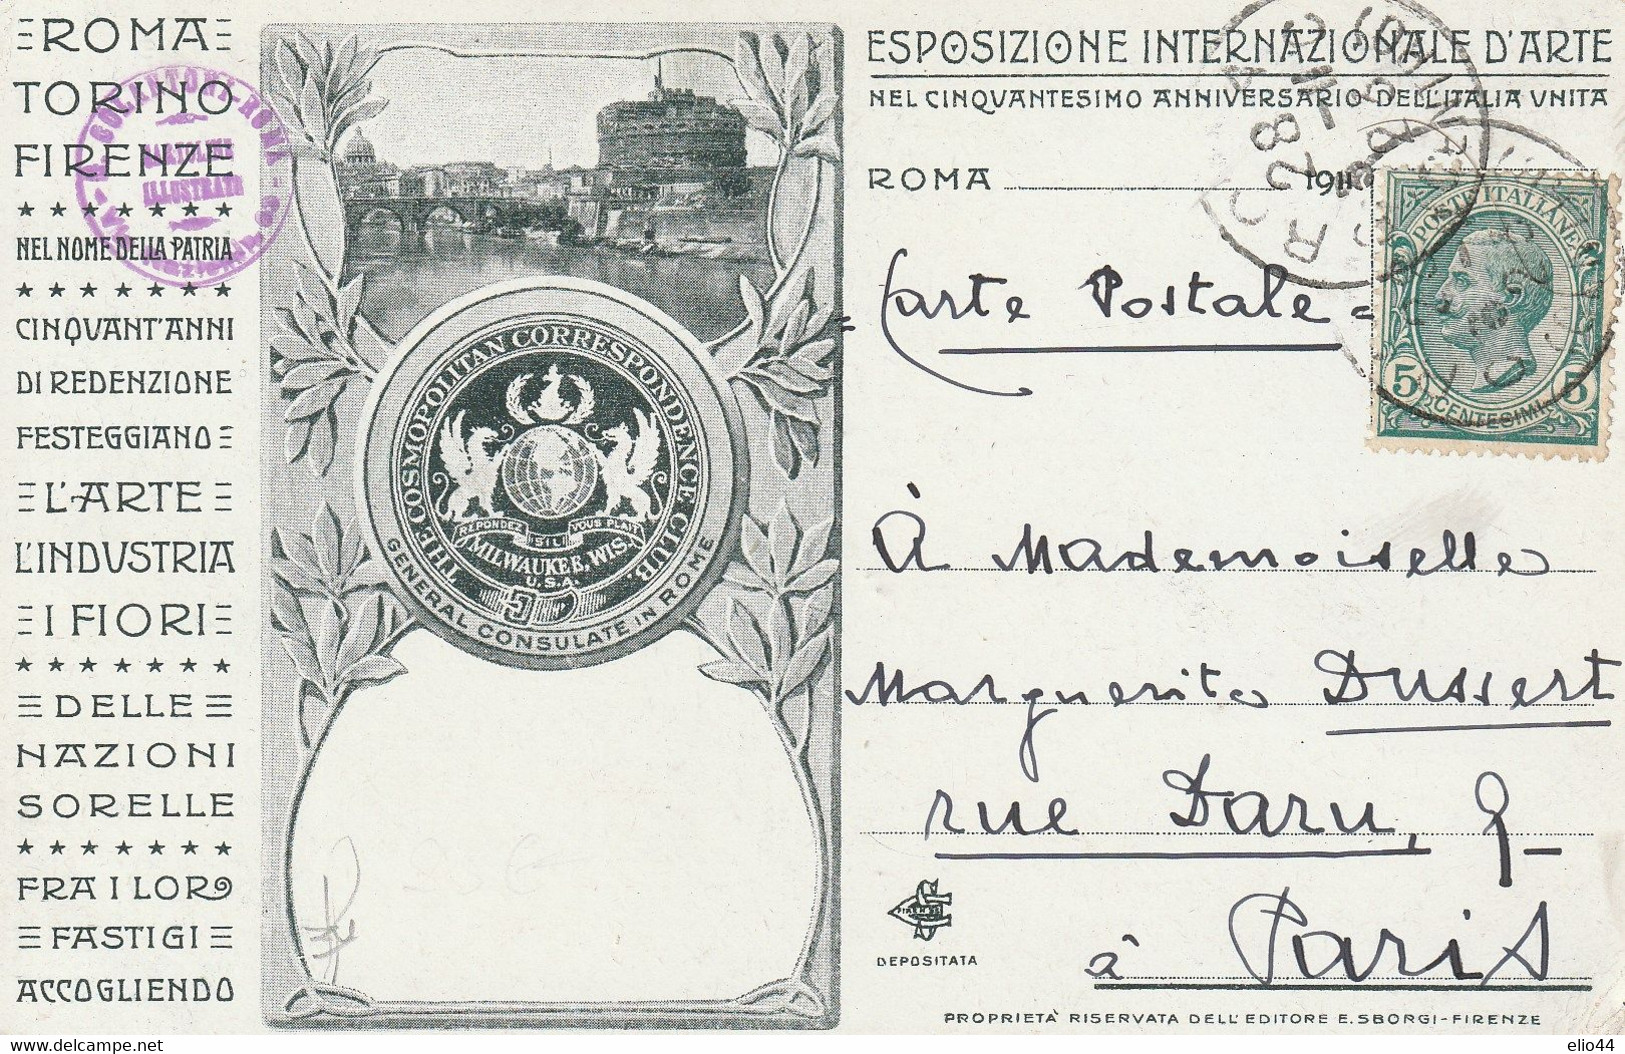 ROMA
TORINO
FIRENZE
NEL NOME DELLA PATRIA
CINQVANT'ANNI
DI REDENZIONE
FESTEGGIANO
L'ARTE
L'INDVSTRIA
I FIORI
DELLE
NAZIONI
SORELLE
FRA I LOR
FASTIGI
ACCOGLIENDO
COLANTONI-ROMA
CARTOLINE
ILLUSTRATE
THE COSMOPOLITAN CORRESPONDENCE CLUB.
REPONDEZ S'IL VOUS PLAIT
MILWAUKEE, WIS.
U.S.A.
GENERAL CONSULATE IN ROME
ESPOSIZIONE INTERNAZIONALE D'ARTE
NEL CINQVANTESIMO ANNIVERSARIO DELL'ITALIA VNITA
ROMA 1911
POSTE ITALIANE
5 CENTESIMI 5
= Carte Postale =
À Mademoiselle
Marguerite Dussert
rue Daru, 9
à Paris
FIRENZE
DEPOSITATA
PROPRIETÀ RISERVATA DELL'EDITORE E. SBORGI-FIRENZE
delcampe.net
elio44